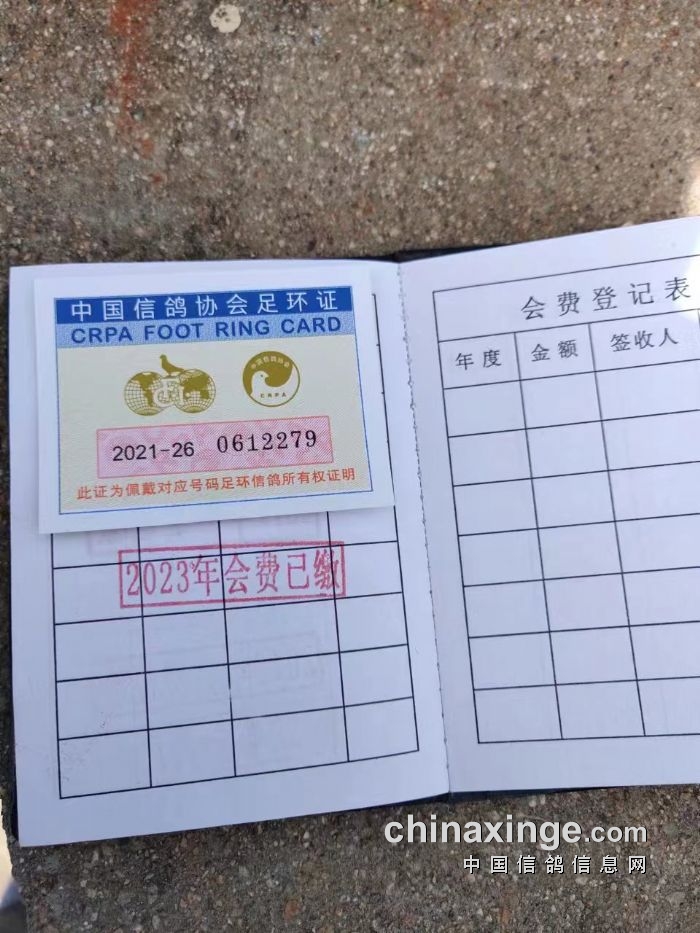 中国信鸽协会足环证
CRPA FOOT RING CARD
中国信鸽协会
CRPA
2021-26 0612279
此证为佩戴对应号码足环信鸽所有权证明
2023年会费已缴
会费登记表
年度 金额 签收人
chinaxinge.com
中国信鸽信息网